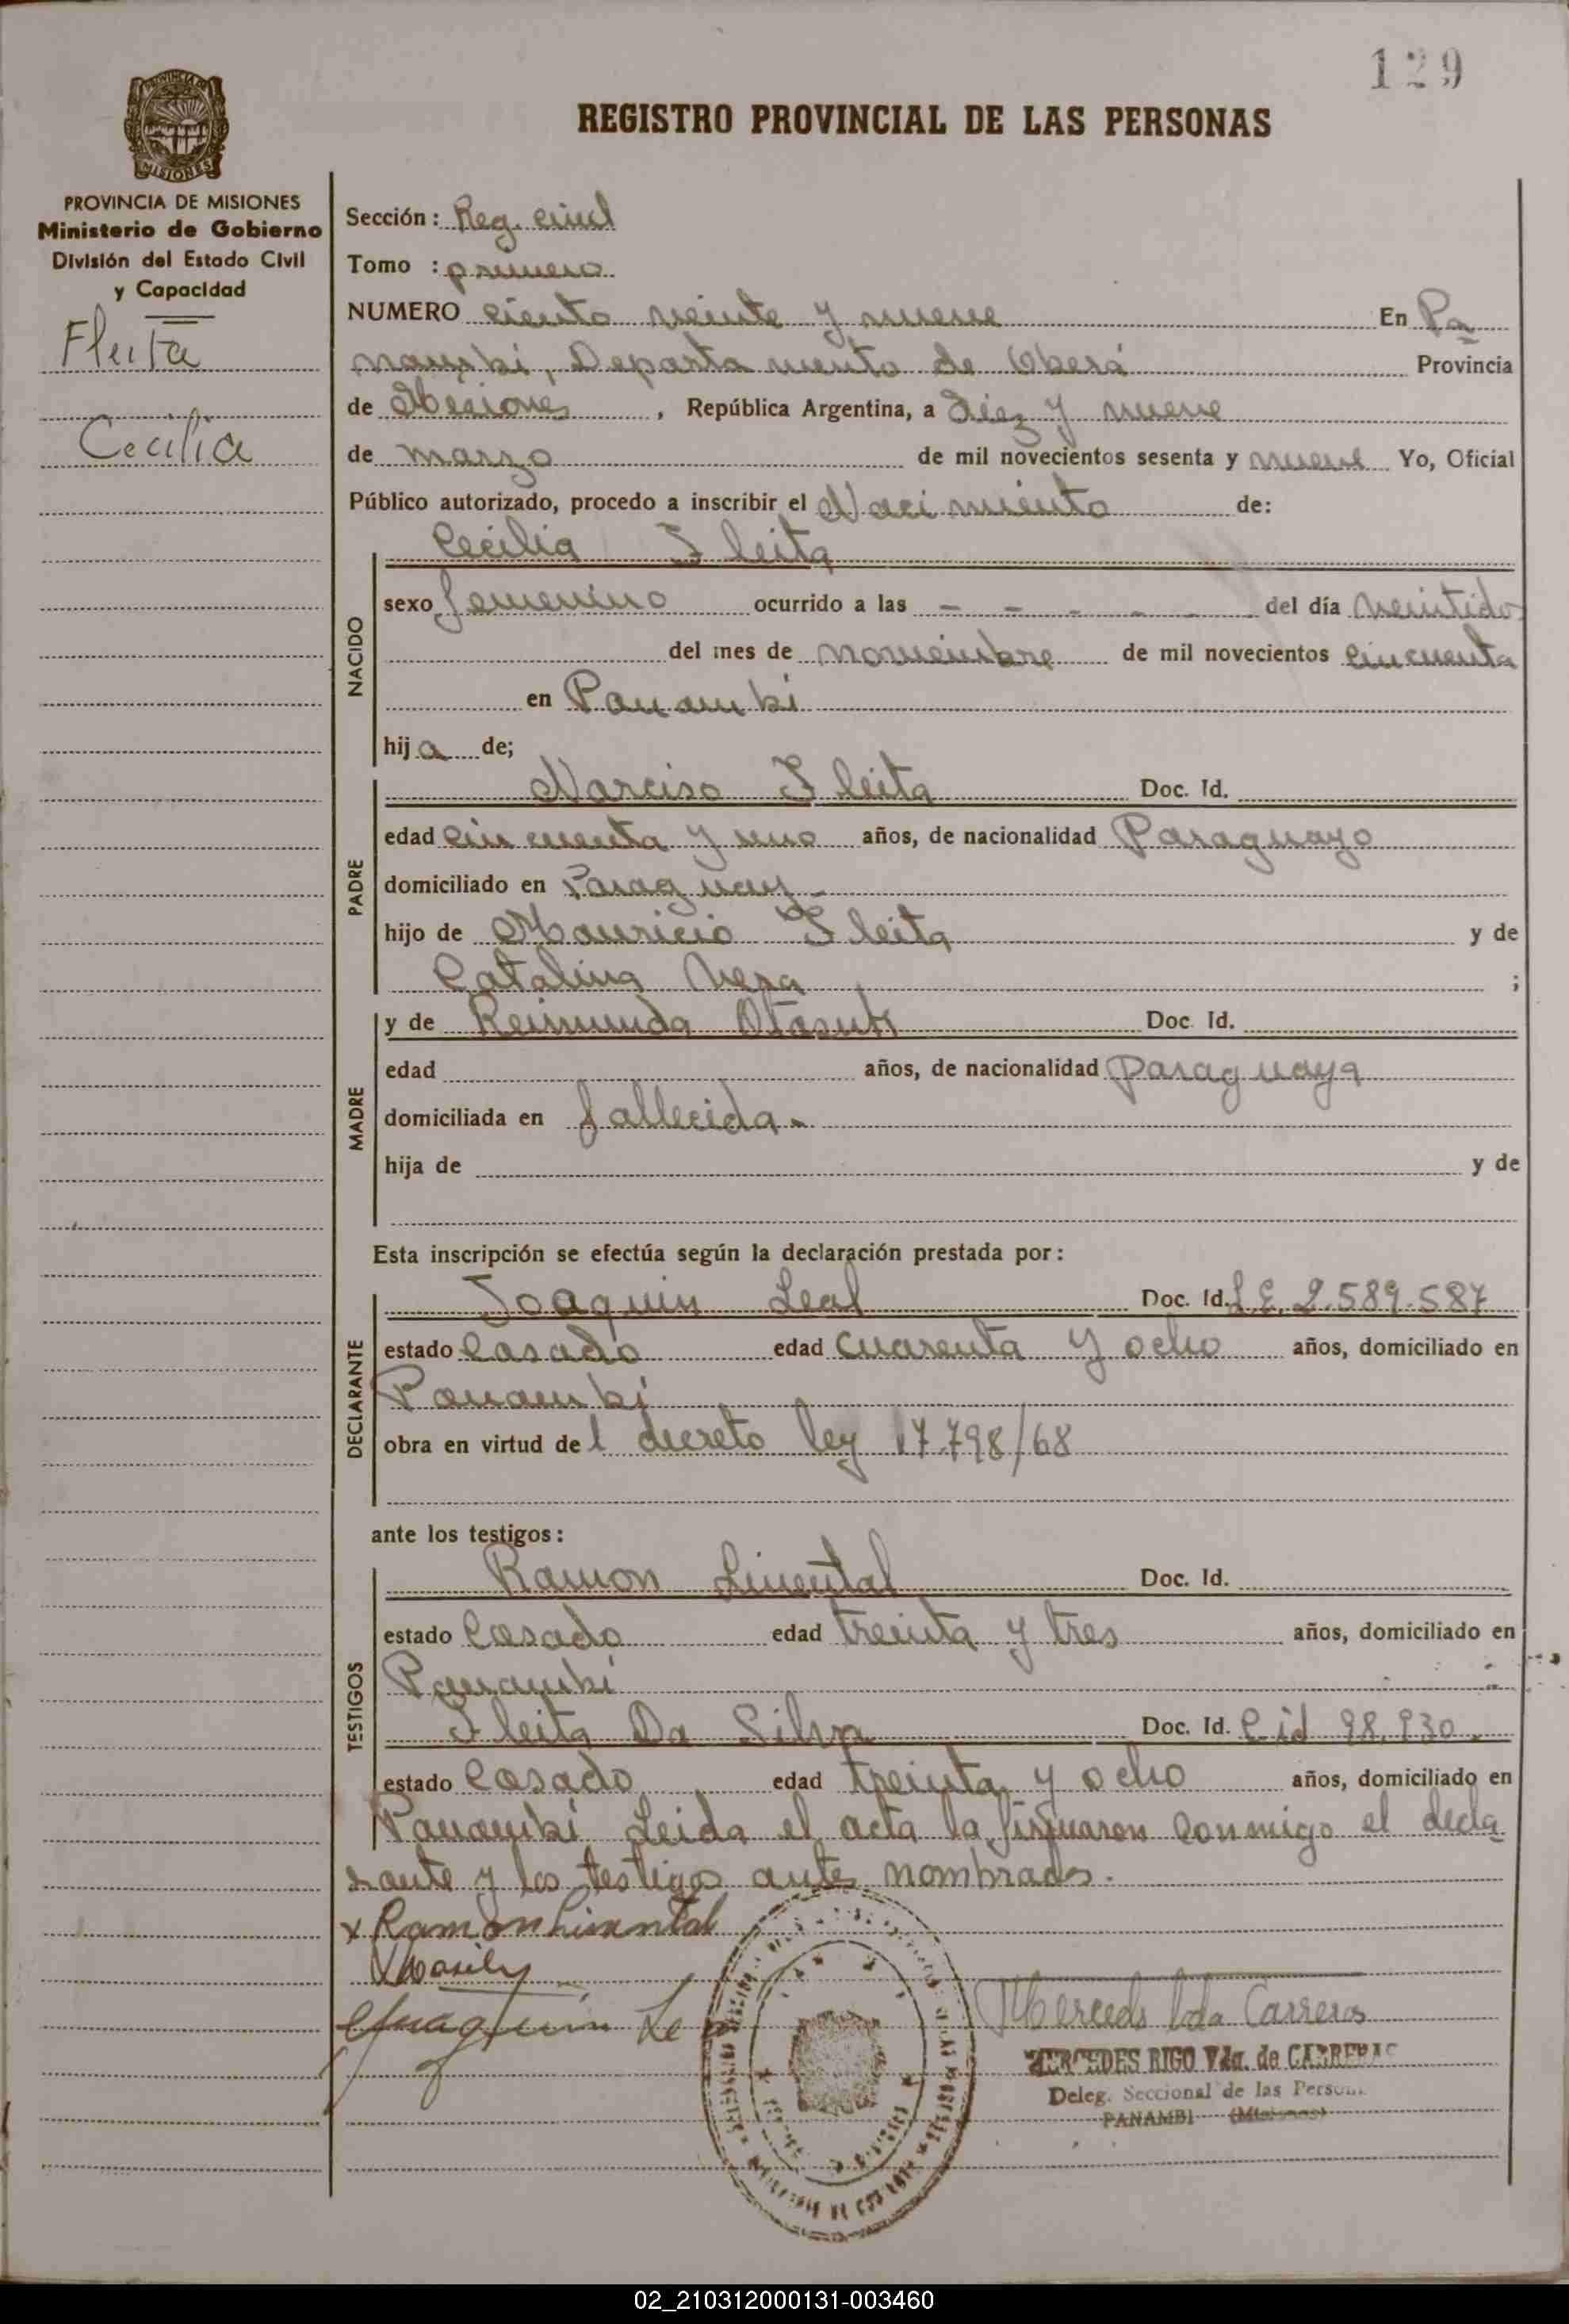 129
REGISTRO PROVINCIAL DE LAS PERSONAS
PROVINCIA DE MISIONES
Ministerio de Gobierno
División del Estado Civil
y Capacidad
Fleita
Cecilia
Sección: Reg. civil
Tomo : primero
NUMERO ciento veinte y nueve En Pa
nambí, Departamento de Oberá Provincia
de Misiones, República Argentina, a Diez y nueve
de marzo de mil novecientos sesenta y nueve Yo, Oficial
Público autorizado, procedo a inscribir el Nacimiento de:
Cecilia Fleita
NACIDO
sexo femenino ocurrido a las - - - - - del día veintidos
del mes de noviembre de mil novecientos cincuenta
en Panambí
hija de;
PADRE
Narciso Fleita Doc. Id.
edad cincuenta y uno años, de nacionalidad Paraguayo
domiciliado en Paraguay
hijo de Mauricio Fleita y de
Catalina Vera ;
MADRE
y de Reimunda Doc Id.
edad años, de nacionalidad Paraguaya
domiciliada en fallecida
hija de y de
Esta inscripción se efectúa según la declaración prestada por:
DECLARANTE
Joaquin Leal Doc. Id. L E, 2.589.587
estado Casado edad cuarenta y ocho años, domiciliado en
Panambí
obra en virtud del decreto ley 17.798/68
ante los testigos:
TESTIGOS
Ramon Doc. Id.
estado Casado edad treinta y tres años, domiciliado en
Panambí
Fleita Da Silva Doc. Id. C id 98.930.
estado Casado edad treinta y ocho años, domiciliado en
Panambí Leida el acta la firmaron conmigo el decla
rante y los testigos antes nombrados.
x Ramon
Joaquin Leal
Mercedes Vda Carreras
MERCEDES RIGO Vda. de CARRERAS
Deleg. Seccional de las Person
PANAMBI (Misiones)
02_210312000131-003460